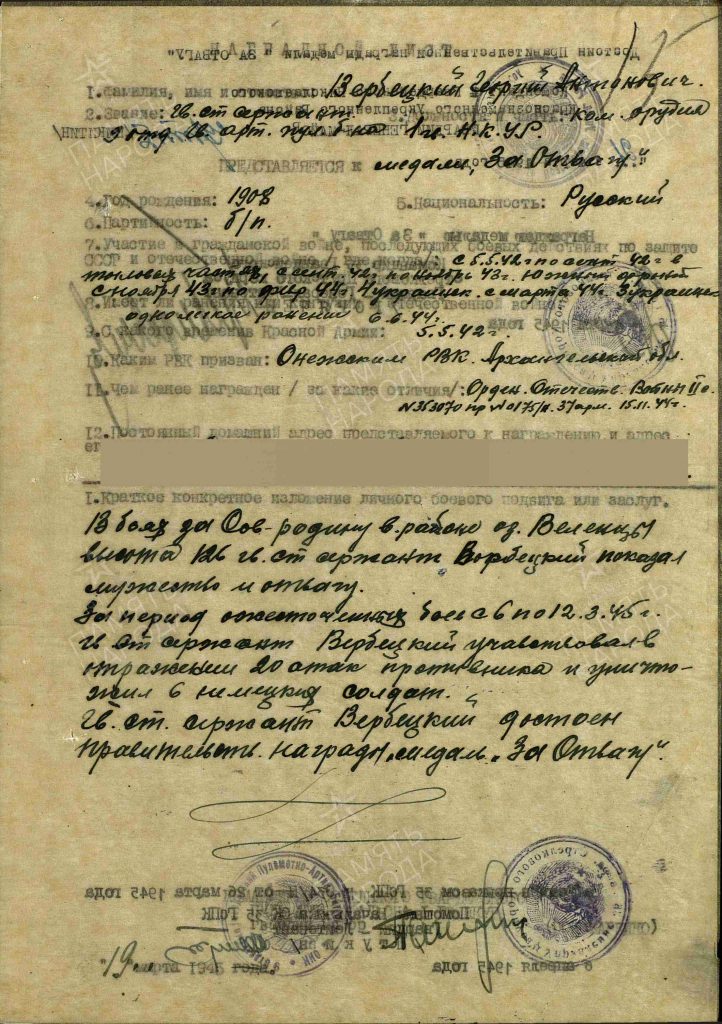 НАГРАДНОЙ ЛИСТ
Достоин Правительственной награды медали "ЗА ОТВАГУ"
1. Фамилия, имя и отчество Вербецкий Георгий Антонович.
2. Звание: Гв. ст. сержант ком. орудия
Гв. арт. пул. б-на 1 Гв. Н.К.У.Р.
ПРЕДСТАВЛЯЕТСЯ к медали „За Отвагу"
4. Год рождения: 1908 5. Национальность: Русский
6. Партийность: б/п.
Награжден медалью "За Отвагу"
7. Участие в гражданской войне, последующих боевых действиях по защите
СССР и отечественной войне /где, когда/: с 5.5.42г по сент 42г в
тыловых частях, с сент. 42г по ноябрь 43г. Южный фронт
с ноября 43г по февр 44г. 4 украинск. с марта 44г. 3 украинс
8. Имеет ли ранения и контузии в отечественной войне
одно легкое ранение 6.6.44г.
9. С какого времени в Красной Армии: 5.5.42г.
10. Каким РВК призван: Онежским РВК. Архангельской обл.
11. Чем ранее награжден /за какие отличия/: Орден. Отечеств. Войны II с.
N353070 пр № 0175/н. 37 арм. 15.11.44г.
12. Постоянный домашний адрес представляемого к награждению и адрес
его
1. Краткое конкретное изложение личного боевого подвига или заслуг.
В боях за Сов-родину в районе оз. Веленцы
высота 126 гв. ст сержант Вербецкий показал
мужество и отвагу.
За период ожесточенных боев с 6 по 12.3.45г.
гв. ст сержант Вербецкий участвовал в
отражении 20 атак противника и уничто-
жил 6 немецких солдат.
Гв. ст. сержант Вербецкий достоен
правительств. награды „медаль „За Отвагу".
приказом 35 ГСПК № 24/Н от 26 марта 1945 года
Помощник Начальника ОК 35 ГСПК
"19" марта 1945 года.
6 апреля 1945 года
ПАМЯТЬ НАРОДА